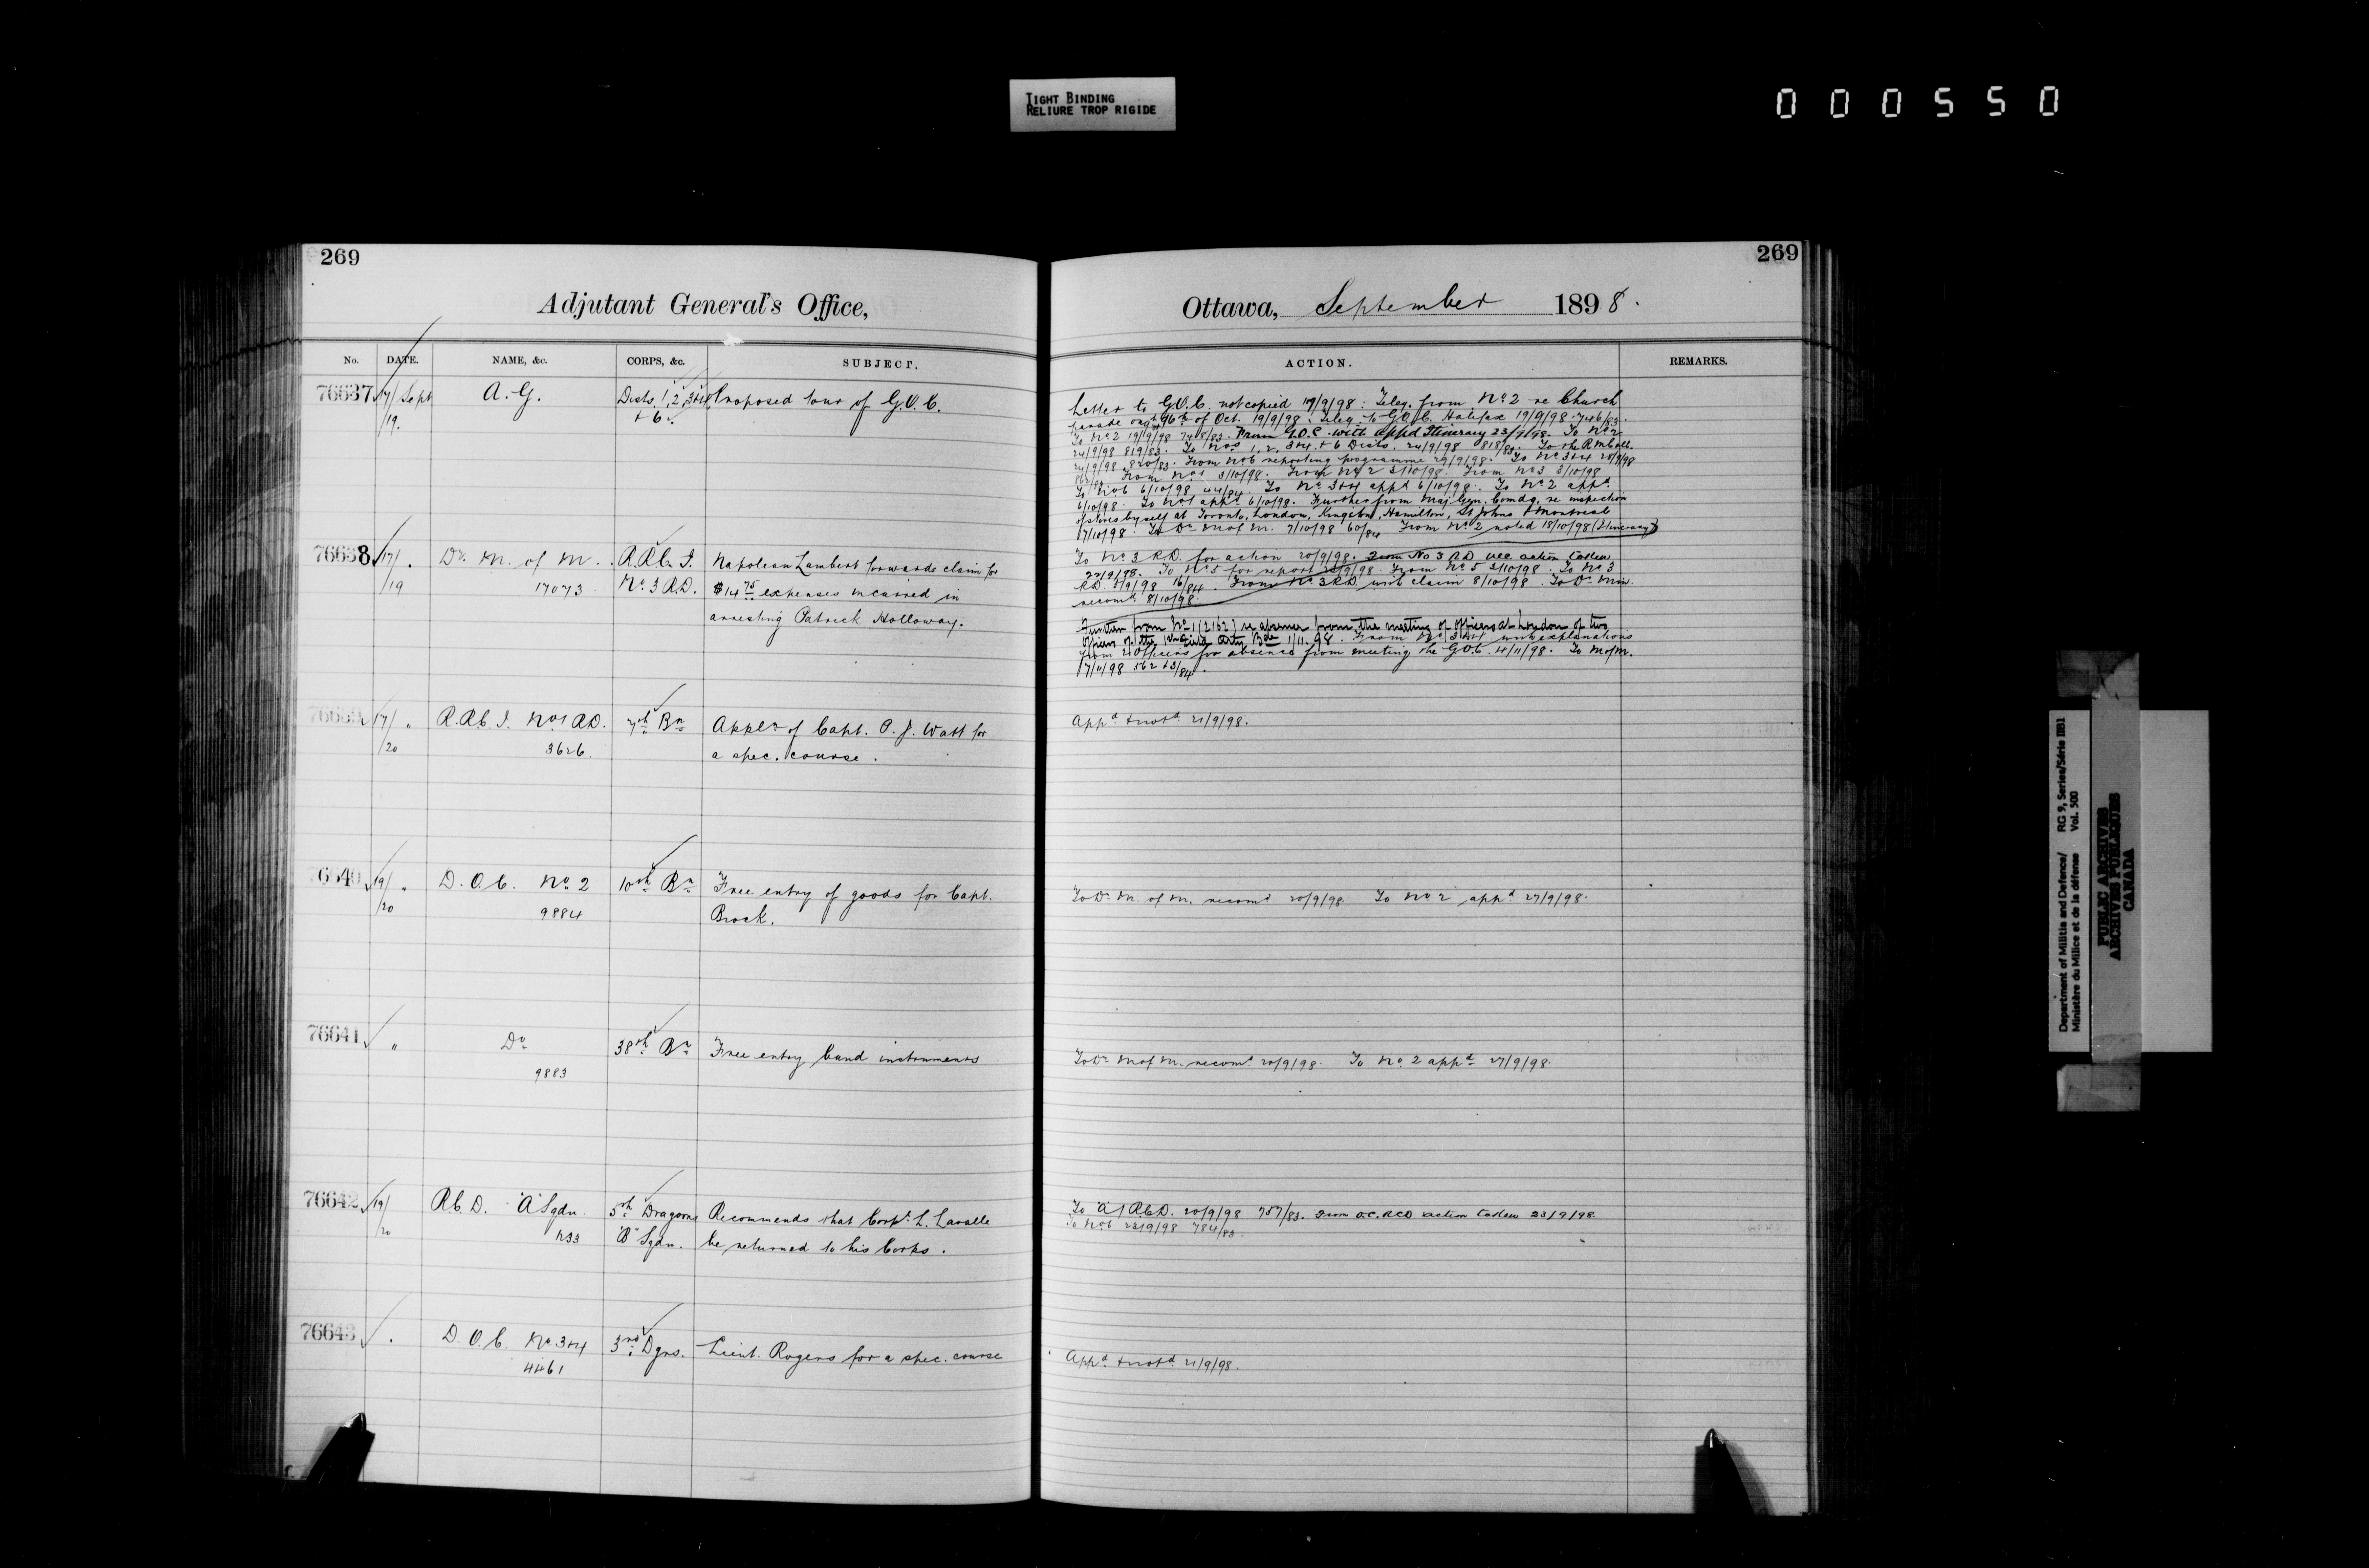 TIGHT BINDING
RELIURE TROP RIGIDE
000550
269
269
Adjutant General's Office,
Ottawa, September 1898.
No. DATE. NAME, &c. CORPS, &c. SUBJECT.
ACTION. REMARKS.
76637 17/ Sept A. G. Dists. 1, 2, 3+4, Proposed tour of G.O.C.
/19. + 6
Letter to G.O.C. not copied 19/9/98. Teleg. from No 2 re Church
parade on 16th of Oct. 19/9/98. Teleg. to G.O.C. Halifax 19/9/98. 746/83.
To No 2 19/9/98 748/83. From G.O.C. with app'd Itinerary 23/9/98. To No 2
24/9/98 819/83. To Nos 1, 2, 3+4, + 6 Dists. 24/9/98 818/83. To the R.M. Coll.
24/9/98 820/83. From No 6 reporting programme 29/9/98. To No 3+4 28/9/98
From No 1 3/10/98. From No 2 3/10/98. From No 3 3/10/98
To No 6 6/10/98 44/84. To No 3+4 appd 6/10/98. To No 2 appd
6/10/98. To No 1 appd 6/10/98. Further from Maj. Gen. Comdg. re inspection
of stores by self at Toronto, London, Kingston, Hamilton, St Johns + Montreal
7/10/98. To Dr M of M. 7/10/98 60/84 From No 2 noted 18/10/98 (Itinerary)
76638 17/ . Dr. M. of M. R.R.C.I. Napoleon Lambert forwards claim for
/19 17073 No. 3 R.D. $14 75 expenses incurred in
arresting Patrick Holloway.
To No 3 R.D. for action 20/9/98. From No 3 R.D. action taken
22/9/98. To No 5 for report /9/98. From No 5 3/10/98. To No 3
R.D. 16/84. From No 3 R.D. with claim 8/10/98. To Dr Min.
recomd 8/10/98.
Further from No 1 (2162) re absence from the meeting of officers at London of two
Officers of the 1st Field Arty Bde 1/11.98. From No 3+4 with explanations
from 2 Officers for absence from meeting the G.O.C. 4/11/98. To M of M.
7/11/98 562 +3/84.
76639 17/ " R.R.C.I. No 1 R.D. 7th Bn Appln of Capt. P. J. Watt for
/20 3626. a spec. course.
Appd + notd 21/9/98.
76640 19/ " D.O.C. No. 2 10th Bn Free entry of goods for Capt.
/20 9884 Brock.
To Dr M. of M. recomd 20/9/98. To No 2 appd 27/9/98.
76641 " Do 38th Bn Free entry band instruments
9883
To Dr M of M. recomd 20/9/98. To No. 2 appd 27/9/98.
76642 19/ R.C.D. "A" Sqdn. 5th Dragoons Recommends that Corpl. L. Lavalle
/20 "B" Sqdn. be returned to his Corps.
To "A" R.C.D. 20/9/98 757/83. From O.C. RCD action taken 23/9/98.
To No 6 23/9/98 784/83.
76643 . D.O.C. No. 3+4 3rd Dgns. Lieut. Rogers for a spec. course
4461
Appd + notd 21/9/98.
Department of Militia and Defence/ RG 9, Series/Série IIB1
Ministère du Milice et de la défense Vol. 500
PUBLIC ARCHIVES
ARCHIVES PUBLIQUES
CANADA